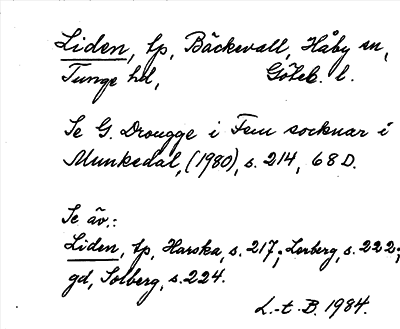 Liden, tp, Bäckevall, Håby sn,
Tunge hd, Göteb. l.
Se G. Drougge i Fem socknar i
Munkedal, (1980), s. 214, 68 D.
Se äv.:
Liden, tp, Harska, s. 217; Lerberg, s. 222;
gd, Solberg, s. 224.
L.-t. B. 1984.